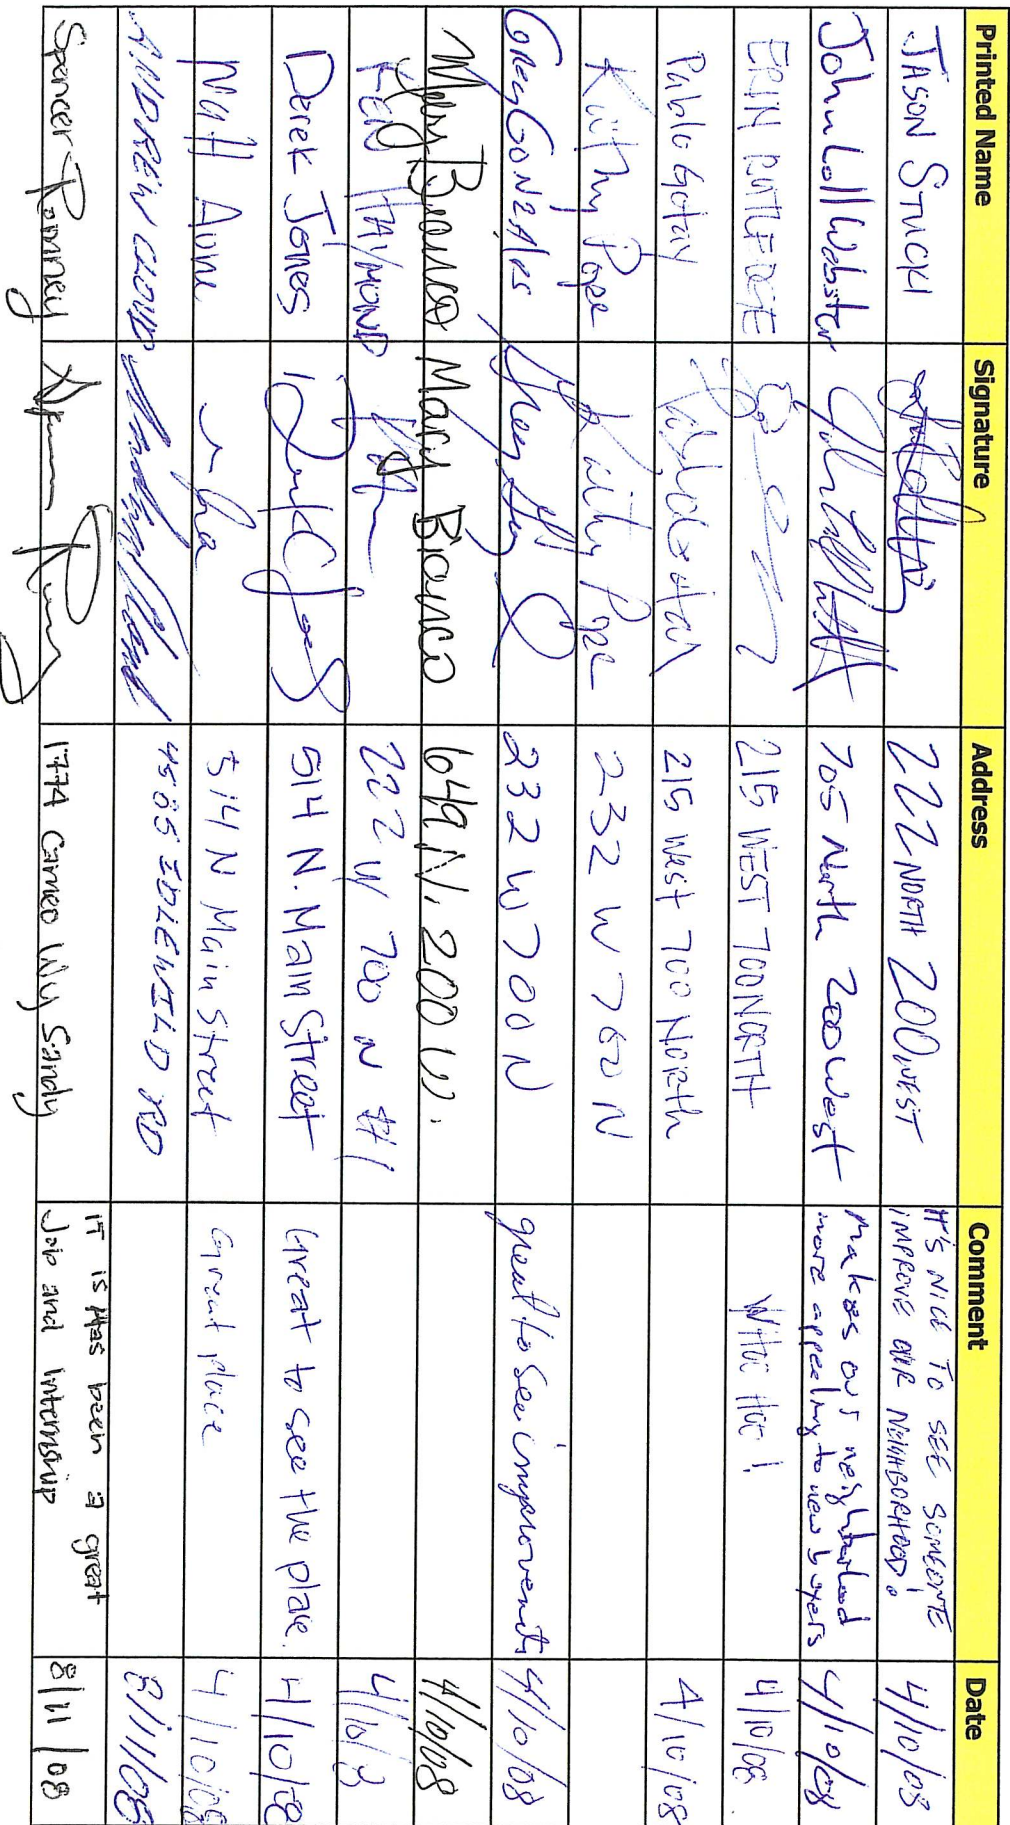 Printed Name Signature Address Comment Date
JASON STUCKI 222 NORTH 200 WEST IT'S NICE TO SEE SOMEONE
IMPROVE OUR NEIGHBORHOOD! 4/10/08
John Loll Webster 705 North 200 West Makes our neighborhood
more appealing to new buyers 4/10/08
ERIN RUTLEDGE 215 WEST 700 NORTH WHOO HOO! 4/10/08
Pablo Gotay 215 West 700 North 4/10/08
Kathy Pope Kathy Pope 232 W 700 N
Greg GONZALES 232 W 700 N great to see improvements 4/10/08
Mary Bianco Mary Bianco 649 N. 200 W. 4/10/08
HAYMOND 222 W 700 N #1 4/10/8
Derek Jones 514 N. Main Street Great to see the place. 4/10/08
Matt Aune 514 N Main Street Great place 4/10/08
ANDREW CLOUD 4585 IDLEWILD RD 8/11/08
Spencer Romney 1774 Cameo Wy Sandy IT is Has been a great
Job and Internship 8/11/08